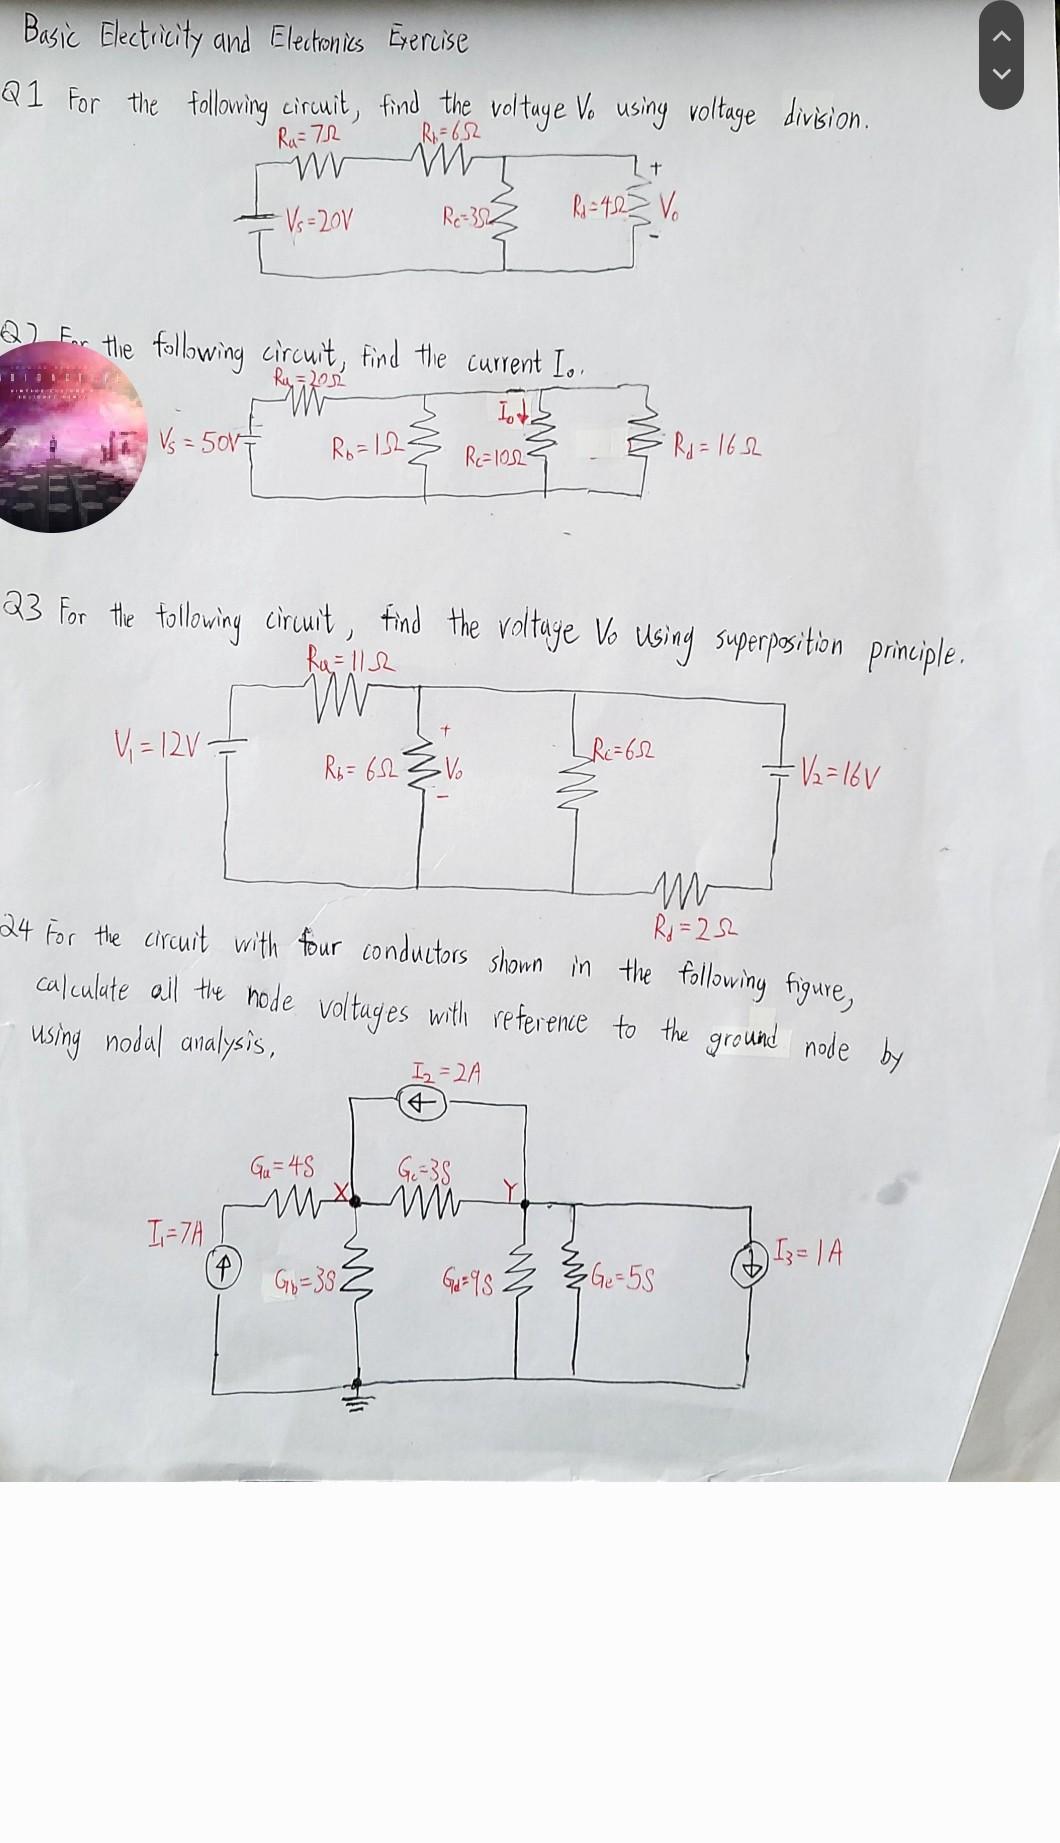 Basic Electricity and Electronics Exercise
Q1 For the following circuit, find the voltage Vo using voltage division.
Ra=7Ω Rb=6Ω
+
Vs=20V Rc=3Ω Rd=4Ω Vo
-
Q2 For the following circuit, find the current Io.
Ra=20Ω
Io
Vs = 50V Rb=1Ω Rc=10Ω Rd=16Ω
Q3 For the following circuit, find the voltage Vo using superposition principle.
Ra=11Ω
+
V1=12V Rb=6Ω Vo Rc=6Ω V2=16V
-
Rd=2Ω
Q4 For the circuit with four conductors shown in the following figure,
calculate all the node voltages with reference to the ground node by
using nodal analysis,
I2=2A
Ga=4S X Gc=3S Y
I1=7A I3=1A
Gb=3S Gd=9S Ge=5S